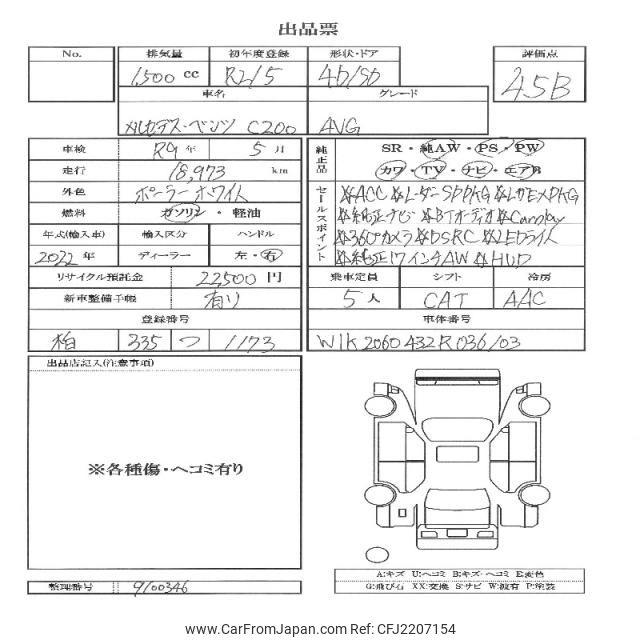 出品票
No. 排気量 初年度登録 形状・ドア 評価点
1,500 cc 4D/5D 4.5B
車名 グレード
メルセデス・ベンツ C200 AVG
車検 R9年 5月 純正品 SR・純AW・PS・PW
走行 18,973 km カワ・TV・ナビ・エアB
外色 ポーラーホワイト セールスポイント ☆ACC☆レーダーSPPKG☆レザEXPKG
燃料 ガソリン・軽油 ☆純正ナビ☆BTオーディオ☆Carplay
年式(輸入車) 輸入区分 ハンドル ☆360°カメラ☆DSRC☆LEDライト
2022年 ディーラー 左・右 ☆純正17インチAW☆HUD
リサイクル預託金 22,500円 乗車定員 シフト 冷房
新車整備手帳 有り 5人 CAT AAC
登録番号 車体番号
柏 335 つ 1173 W1K2060432R036103
出品店記入(注意事項)
※各種傷・ヘコミ有り
A:キズ U:ヘコミ B:キズ・ヘコミ E:変色
G:飛び石 XX:交換 S:サビ W:波有 P:塗装
整理番号 9100346
© CarFromJapan.com - Ref: CFJ2207154